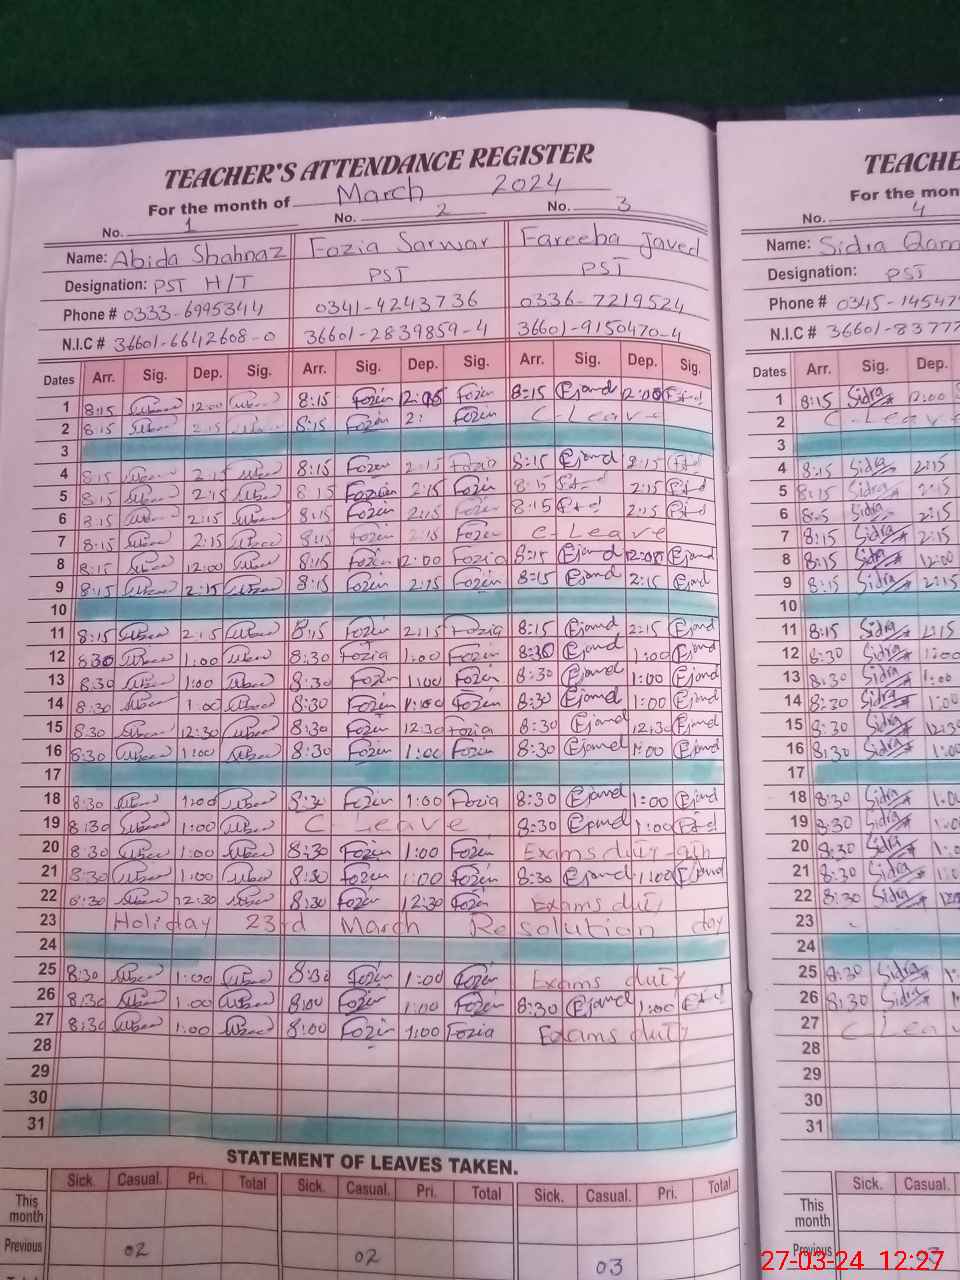 TEACHER'S ATTENDANCE REGISTER
For the month of March 2024
No. 1 No. 2 No. 3
Name: Abida Shahnaz Fozia Sarwar Fareeba Javed
Designation: PST H/T PST PST
Phone # 0333-6995344 0341-4243736 0336-7219524
N.I.C # 36601-6642608-0 36601-2839859-4 36601-9150470-4
Dates Arr. Sig. Dep. Sig. Arr. Sig. Dep. Sig. Arr. Sig. Dep. Sig.
1 8:15 12:00 8:15 Fozia Fozia 8:15 Ejaved 12:00
2 8:15 2:15 8:15 Fozia 2: Fozia C-Leave
3
4 8:15 2:15 8:15 Fozia 2:15 Fozia 8:15 Ejaved 2:15
5 8:15 2:15 8:15 Fozia 2:15 Fozia 8:15 2:15
6 8:15 2:15 8:15 Fozia 2:15 Fozia 8:15 2:15
7 8:15 2:15 8:15 Fozia 2:15 Fozia C-Leave
8 8:15 12:00 8:15 Fozia 12:00 Fozia 8:15 Ejaved 12:00 Ejaved
9 8:15 2:15 8:15 Fozia 2:15 Fozia 8:15 Ejaved 2:15 Ejaved
10
11 8:15 2:15 8:15 Fozia 2:15 Fozia 8:15 Ejaved 2:15 Ejaved
12 8:30 1:00 8:30 Fozia 1:00 Fozia 8:30 Ejaved 1:00 Ejaved
13 8:30 1:00 8:30 Fozia 1:00 Fozia 8:30 Ejaved 1:00 Ejaved
14 8:30 1:00 8:30 Fozia 1:00 Fozia 8:30 Ejaved 1:00 Ejaved
15 8:30 12:30 8:30 Fozia 12:30 Fozia 8:30 Ejaved 12:30 Ejaved
16 8:30 1:00 8:30 Fozia 1:00 Fozia 8:30 Ejaved 1:00 Ejaved
17
18 8:30 1:00 8:30 Fozia 1:00 Fozia 8:30 Ejaved 1:00 Ejaved
19 8:30 1:00 C-Leave 8:30 Ejaved 1:00
20 8:30 1:00 8:30 Fozia 1:00 Fozia Exams duty
21 8:30 1:00 8:30 Fozia 1:00 Fozia 8:30 Ejaved 1:00 Ejaved
22 8:30 12:30 8:30 Fozia 12:30 Fozia Exams duty
23 Holiday 23rd March Resolution day
24
25 8:30 1:00 8:30 Fozia 1:00 Fozia Exams duty
26 8:30 1:00 8:00 Fozia 1:00 Fozia 8:30 Ejaved 1:00
27 8:30 1:00 8:00 Fozia 1:00 Fozia Exams duty
28
29
30
31
STATEMENT OF LEAVES TAKEN.
Sick. Casual. Pri. Total Sick. Casual. Pri. Total Sick. Casual. Pri. Total
This month
Previous 02 02 03
TEACHE
For the mon
No. 4
Name: Sidra Qam
Designation: PST
Phone # 0345-14547
N.I.C # 36601-8377
Dates Arr. Sig. Dep.
1 8:15 Sidra 12:00
2 C-Leave
3
4 8:15 Sidra 2:15
5 8:15 Sidra 2:15
6 Sidra 2:15
7 8:15 Sidra 2:15
8 8:15 Sidra 12:00
9 8:15 Sidra 2:15
10
11 8:15 Sidra 2:15
12 8:30 Sidra 1:00
13 8:30 Sidra 1:00
14 8:30 Sidra 1:00
15 8:30 Sidra 12:3
16 8:30 Sidra 1:00
17
18 8:30 Sidra 1:0
19 8:30 Sidra 1:0
20 8:30 Sidra 1:
21 8:30 Sidra 1:0
22 8:30 Sidra
23
24
25 8:30 Sidra 1:
26 8:30 Sidra
27 C Leav
28
29
30
31
Sick. Casual.
This month
Previous
27-03-24 12:27